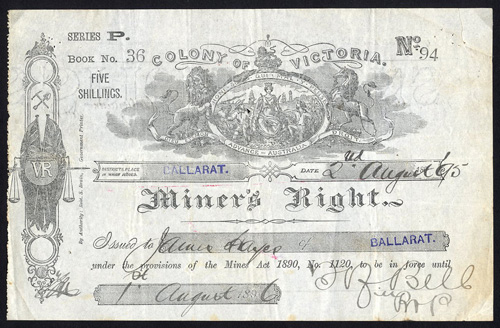 SERIES P.
BOOK No. 36
COLONY OF VICTORIA.
No. 94
FIVE
SHILLINGS.
ADVANCE AUSTRALIA
VR
DISTRICT & PLACE
IN WHICH ISSUED.
BALLARAT.
DATE 2nd August 95
Miner's Right.
Issued to James Hayes of BALLARAT.
under the provisions of the Mines Act 1890, No. 1120, to be in force until
1st August 1896
Bell
Government Printer.
By Authority: